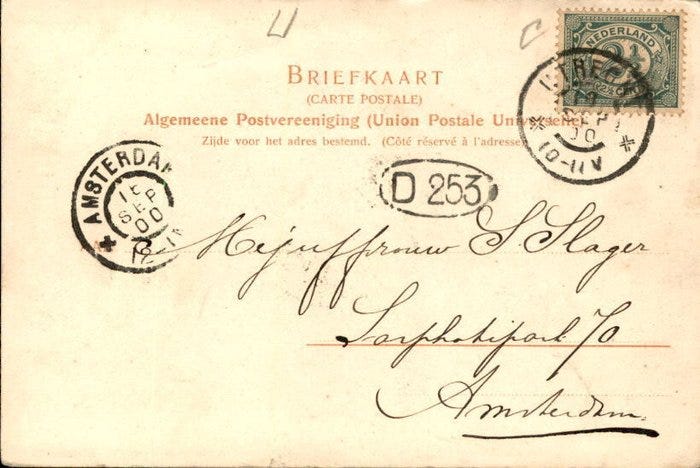 NEDERLAND
2½
BRIEFKAART
(CARTE POSTALE)
Algemeene Postvereeniging (Union Postale Universelle)
Zijde voor het adres bestemd. (Côté réservé à l'adresse)
UTRECHT
SEP
00
10-11V
AMSTERDAM
15
SEP
00
12-1N
D 253
Mejuffrouw S Slager
Sarphatipark 70
Amsterdam.